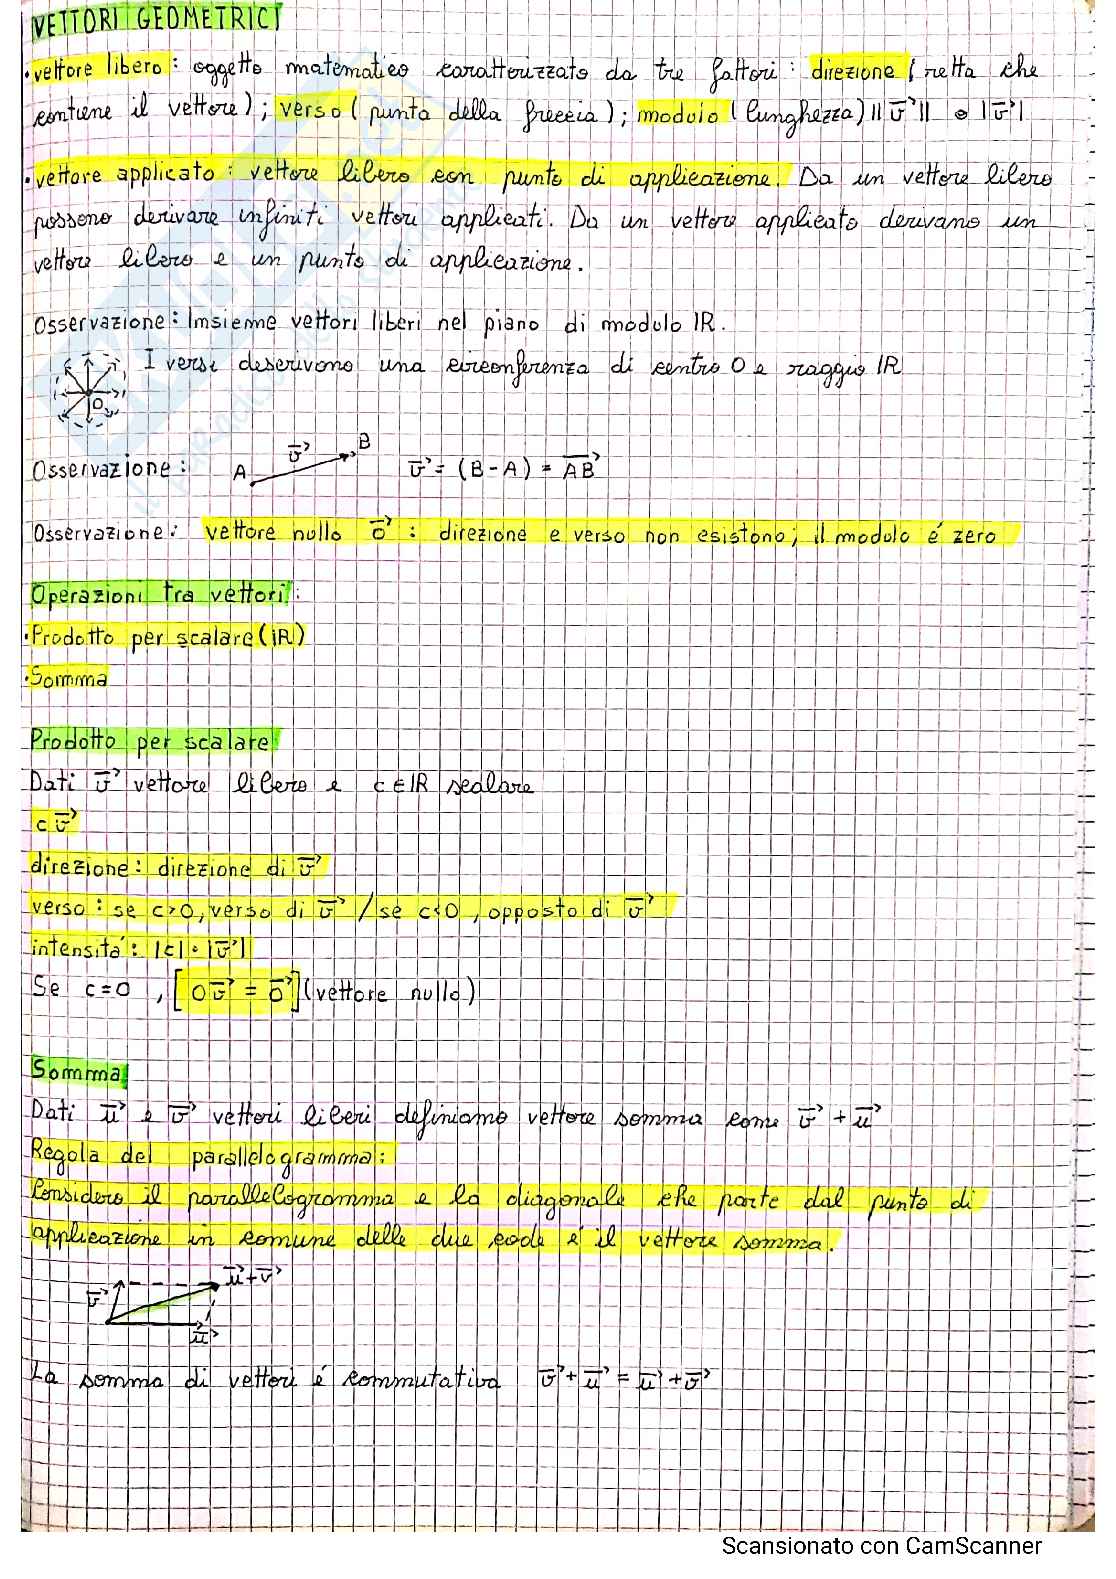 VETTORI GEOMETRICI
• vettore libero : oggetto matematico caratterizzato da tre fattori : direzione (retta che
contiene il vettore) ; verso ( punta della freccia) ; modulo ( lunghezza) ||v⃗|| o |v⃗|
• vettore applicato : vettore libero con punto di applicazione. Da un vettore libero
possono derivare infiniti vettori applicati. Da un vettore applicato derivano un
vettore libero e un punto di applicazione.
Osservazione : Insieme vettori liberi nel piano di modulo IR.
I versi descrivono una circonferenza di centro O e raggio IR
O
Osservazione : A v⃗ B v⃗ = (B - A) = AB⃗
Osservazione : vettore nullo 0⃗ : direzione e verso non esistono ; il modulo é zero
Operazioni tra vettori :
• Prodotto per scalare (IR)
• Somma
Prodotto per scalare
Dati v⃗ vettore libero e c ∈ IR scalare
c v⃗
direzione : direzione di v⃗
verso : se c>0, verso di v⃗ / se c<0, opposto di v⃗
intensitá : |c| • |v⃗|
Se c=0 , [ 0v⃗ = 0⃗ ] (vettore nullo)
Somma
Dati u⃗ e v⃗ vettori liberi definiamo vettore somma come v⃗ + u⃗
Regola del parallelogramma :
Considero il parallelogramma e la diagonale che parte dal punto di
applicazione in comune delle due code é il vettore somma.
v⃗ u⃗+v⃗
u⃗
La somma di vettori é commutativa v⃗ + u⃗ = u⃗ + v⃗
Scansionato con CamScanner